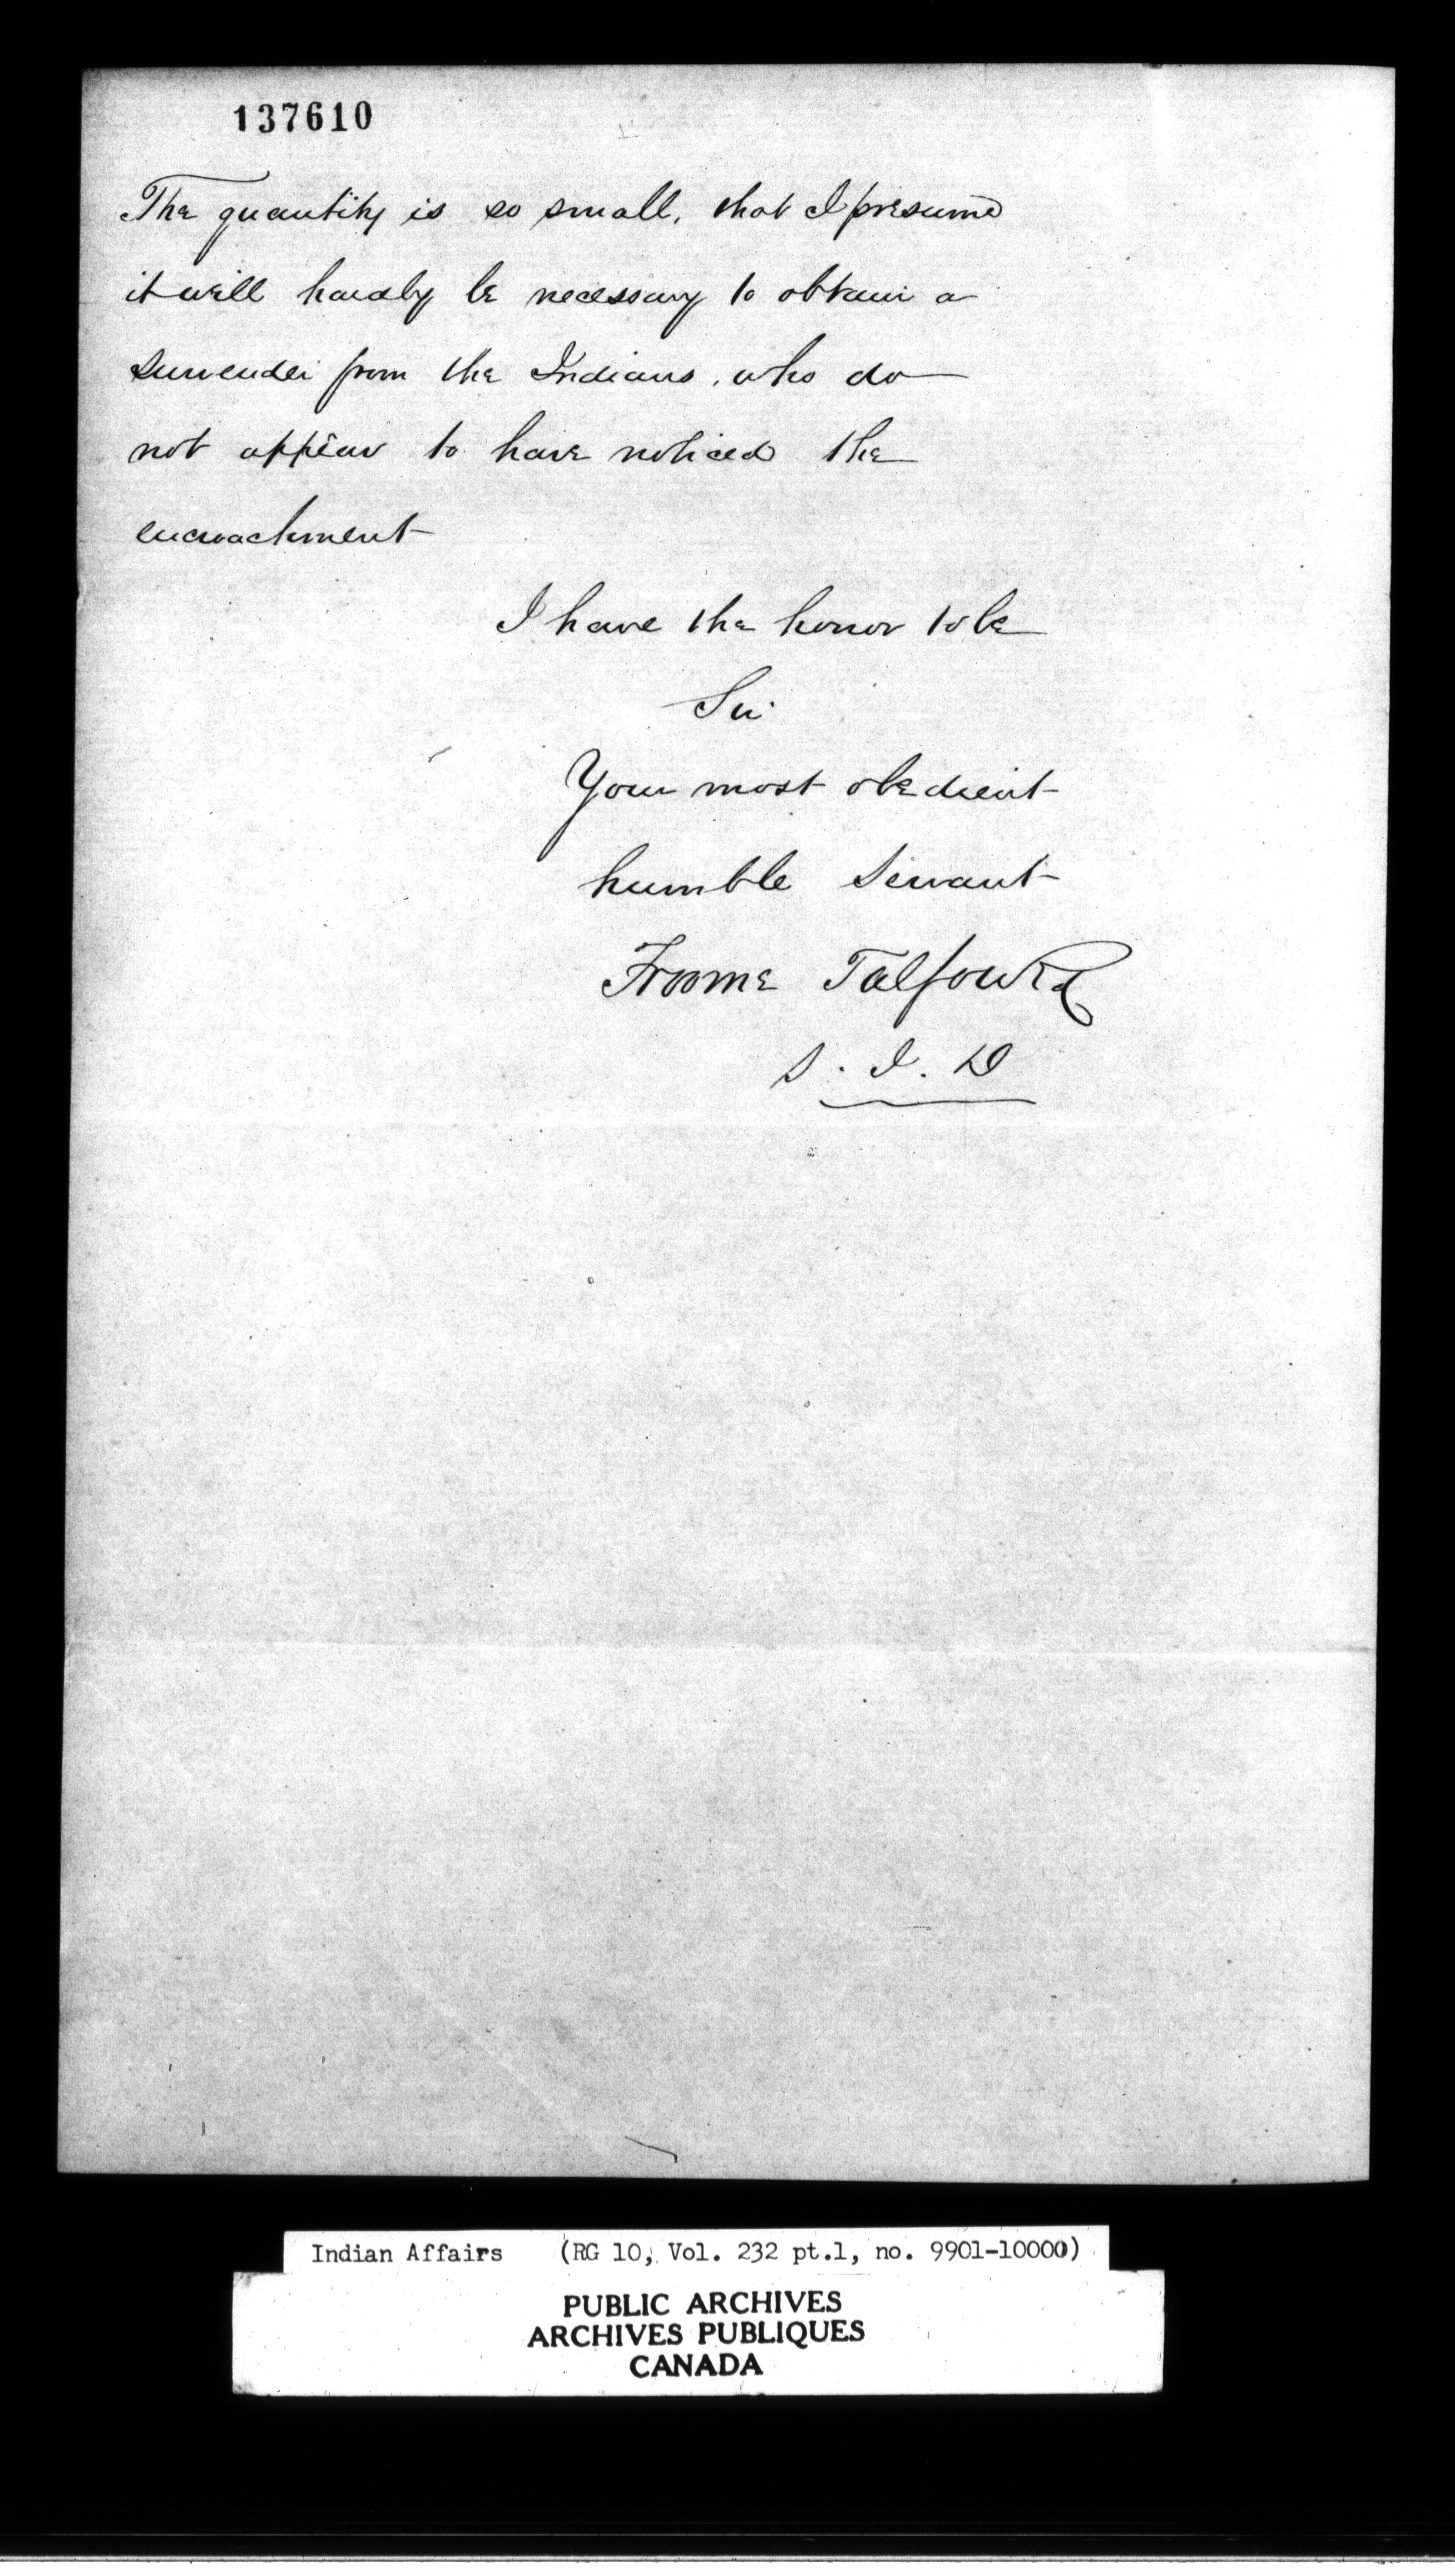 137610
The quantity is so small, that I presume
it will hardly be necessary to obtain a
surrender from the Indians, who do
not appear to have noticed the
encroachment
I have the honor to be
Sir
Your most obedient
humble Servant
Froome Talfourd
S. I. D
Indian Affairs (RG 10, Vol. 232 pt.1, no. 9901-10000)
PUBLIC ARCHIVES
ARCHIVES PUBLIQUES
CANADA